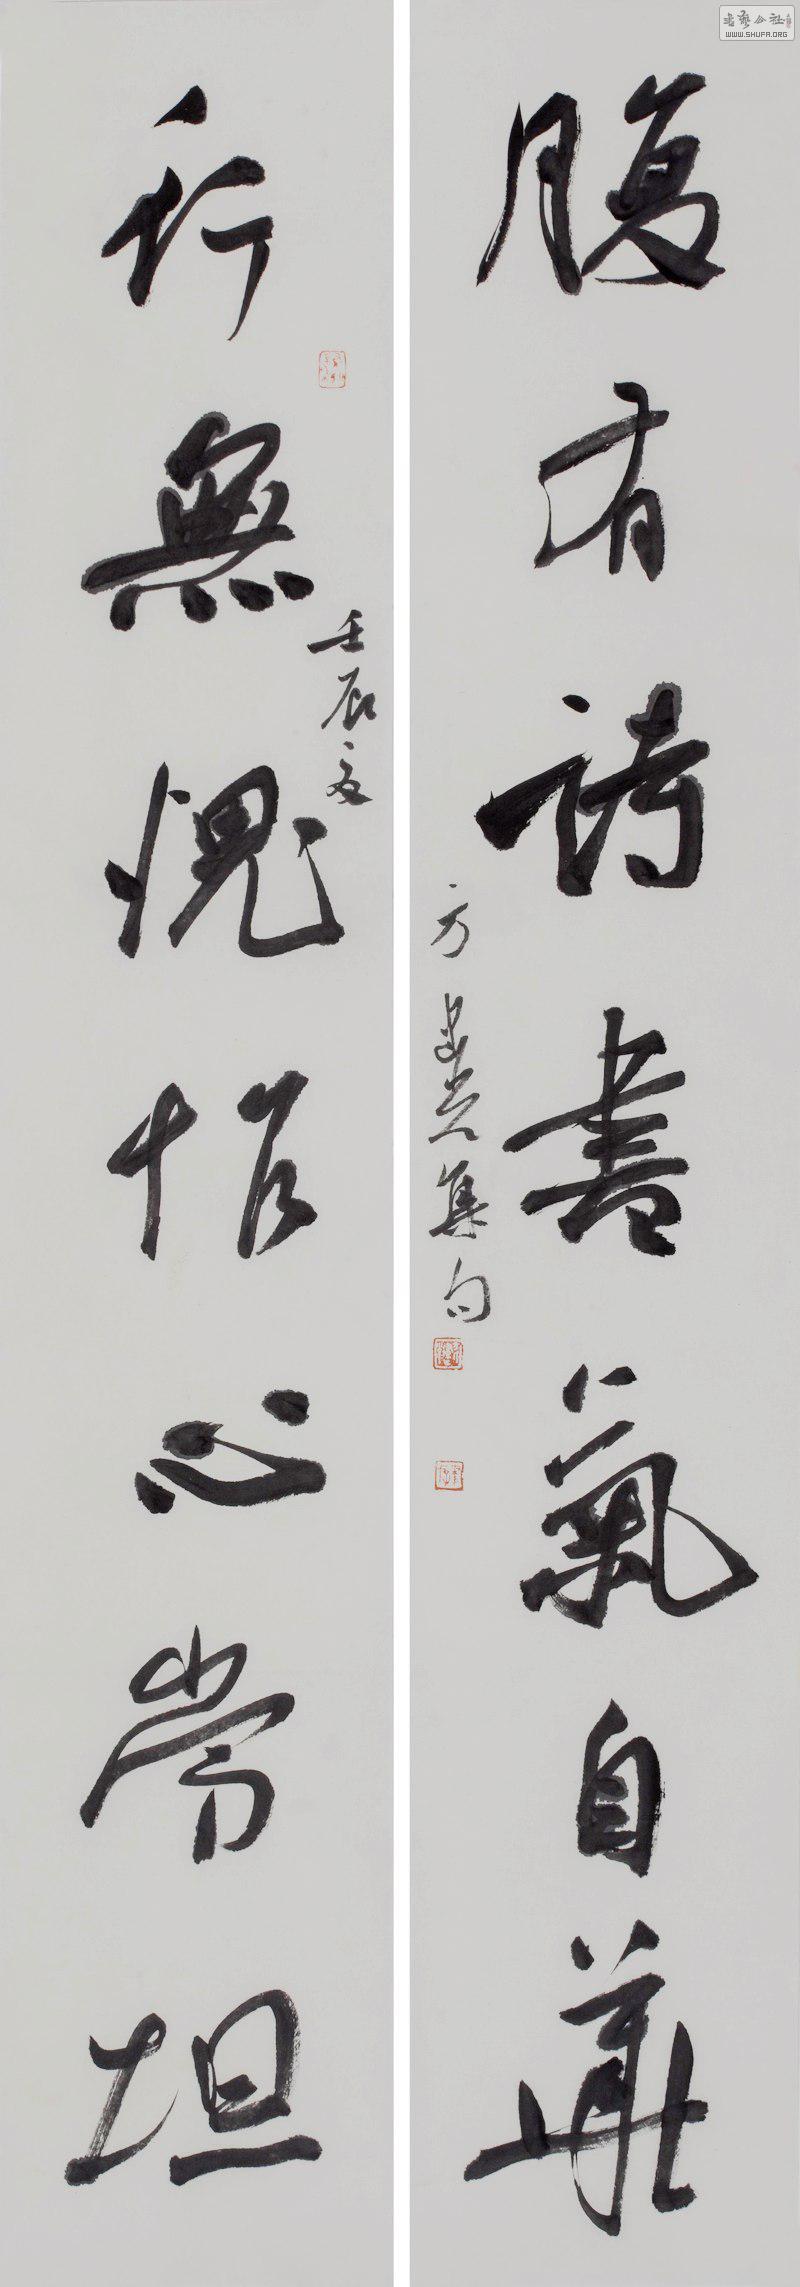 腹有詩書氣自華
行無愧怍心常坦
壬辰夏
方建集句
書藝公社
WWW.SHUFA.ORG